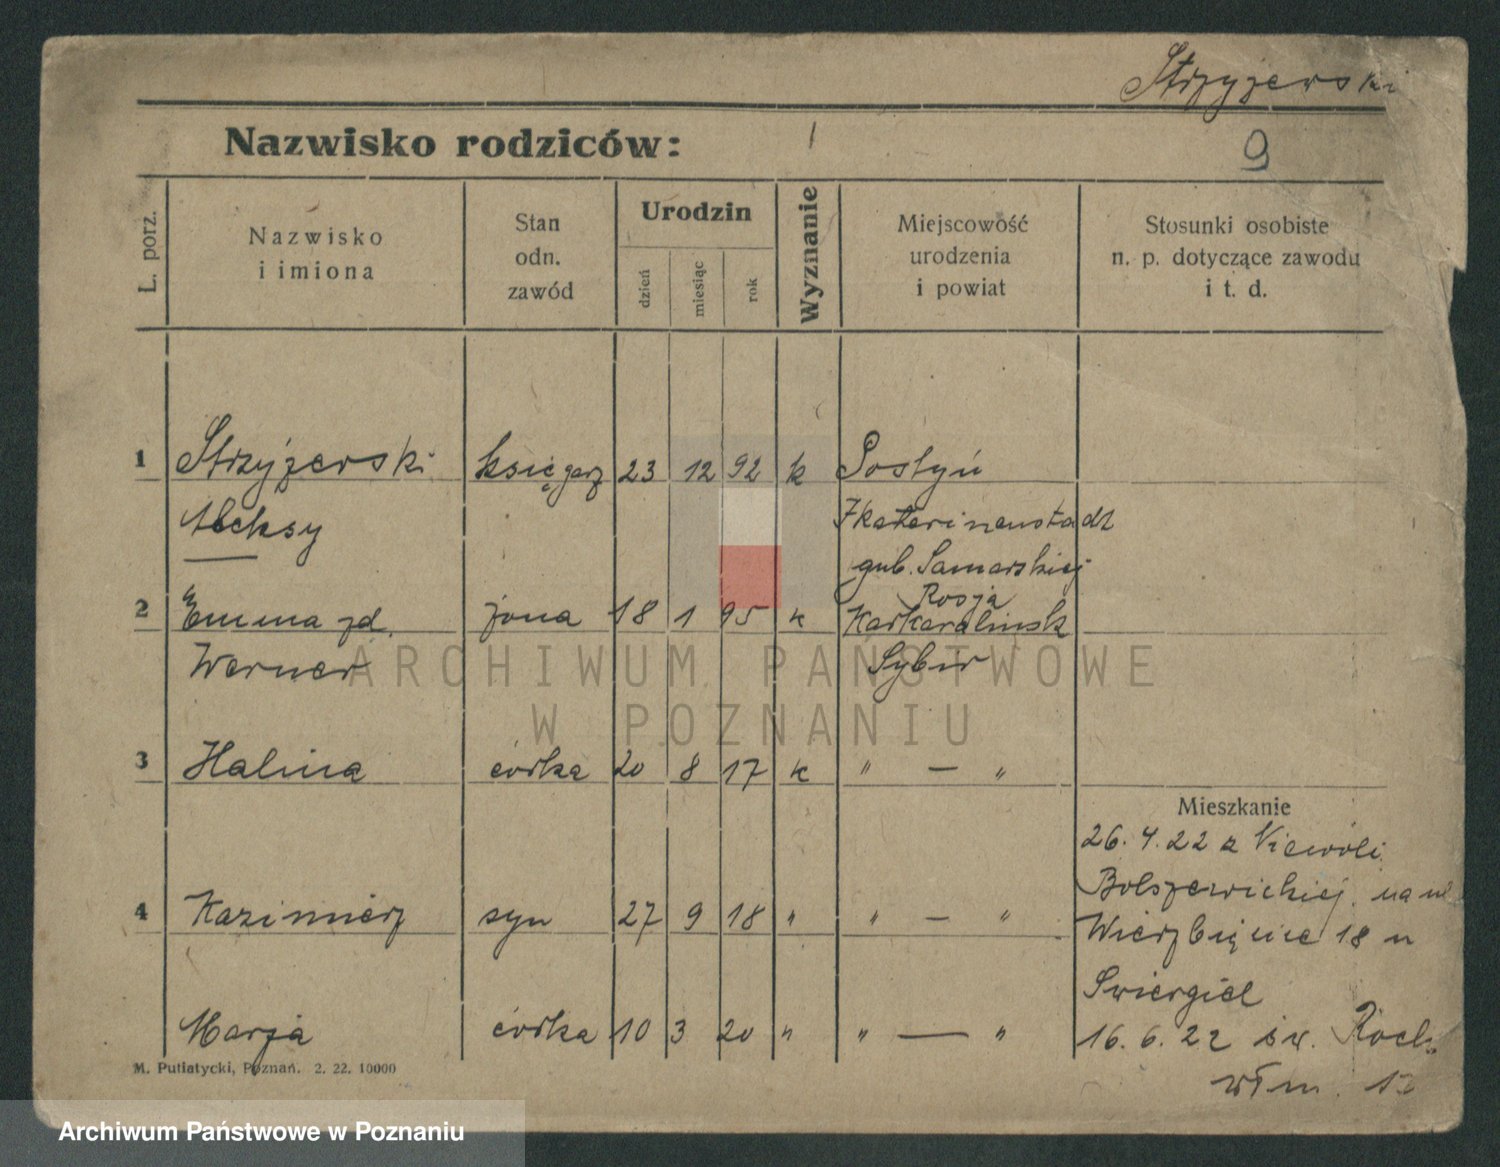 Strzyżewski
Nazwisko rodziców:
9
L. porz.
Nazwisko
i imiona
Stan
odn.
zawód
Urodzin
dzień
miesiąc
rok
Wyznanie
Miejscowość
urodzenia
i powiat
Stosunki osobiste
n. p. dotyczące zawodu
i t. d.
1 Strzyżewski księgarz 23 12 92 k Gostyń
Aleksy
Ikaterinenstadt
gub. Samarskiej
Rosja
2 Emma zd. żona 18 1 95 k Karkaralinsk
Werner Sybir
3 Halina córka 20 8 17 k " — "
Mieszkanie
26. 4. 22 z Niewoli
Bolszewickiej na ul
4 Kazimierz syn 27 9 18 " " — "
Wierzbięcice 18 u
Swiergiel
Marja córka 10 3 20 " " — "
16. 6. 22 św. Roch
włm. 13
M. Putiatycki, Poznań. 2. 22. 10000
ARCHIWUM PAŃSTWOWE
W POZNANIU
Archiwum Państwowe w Poznaniu